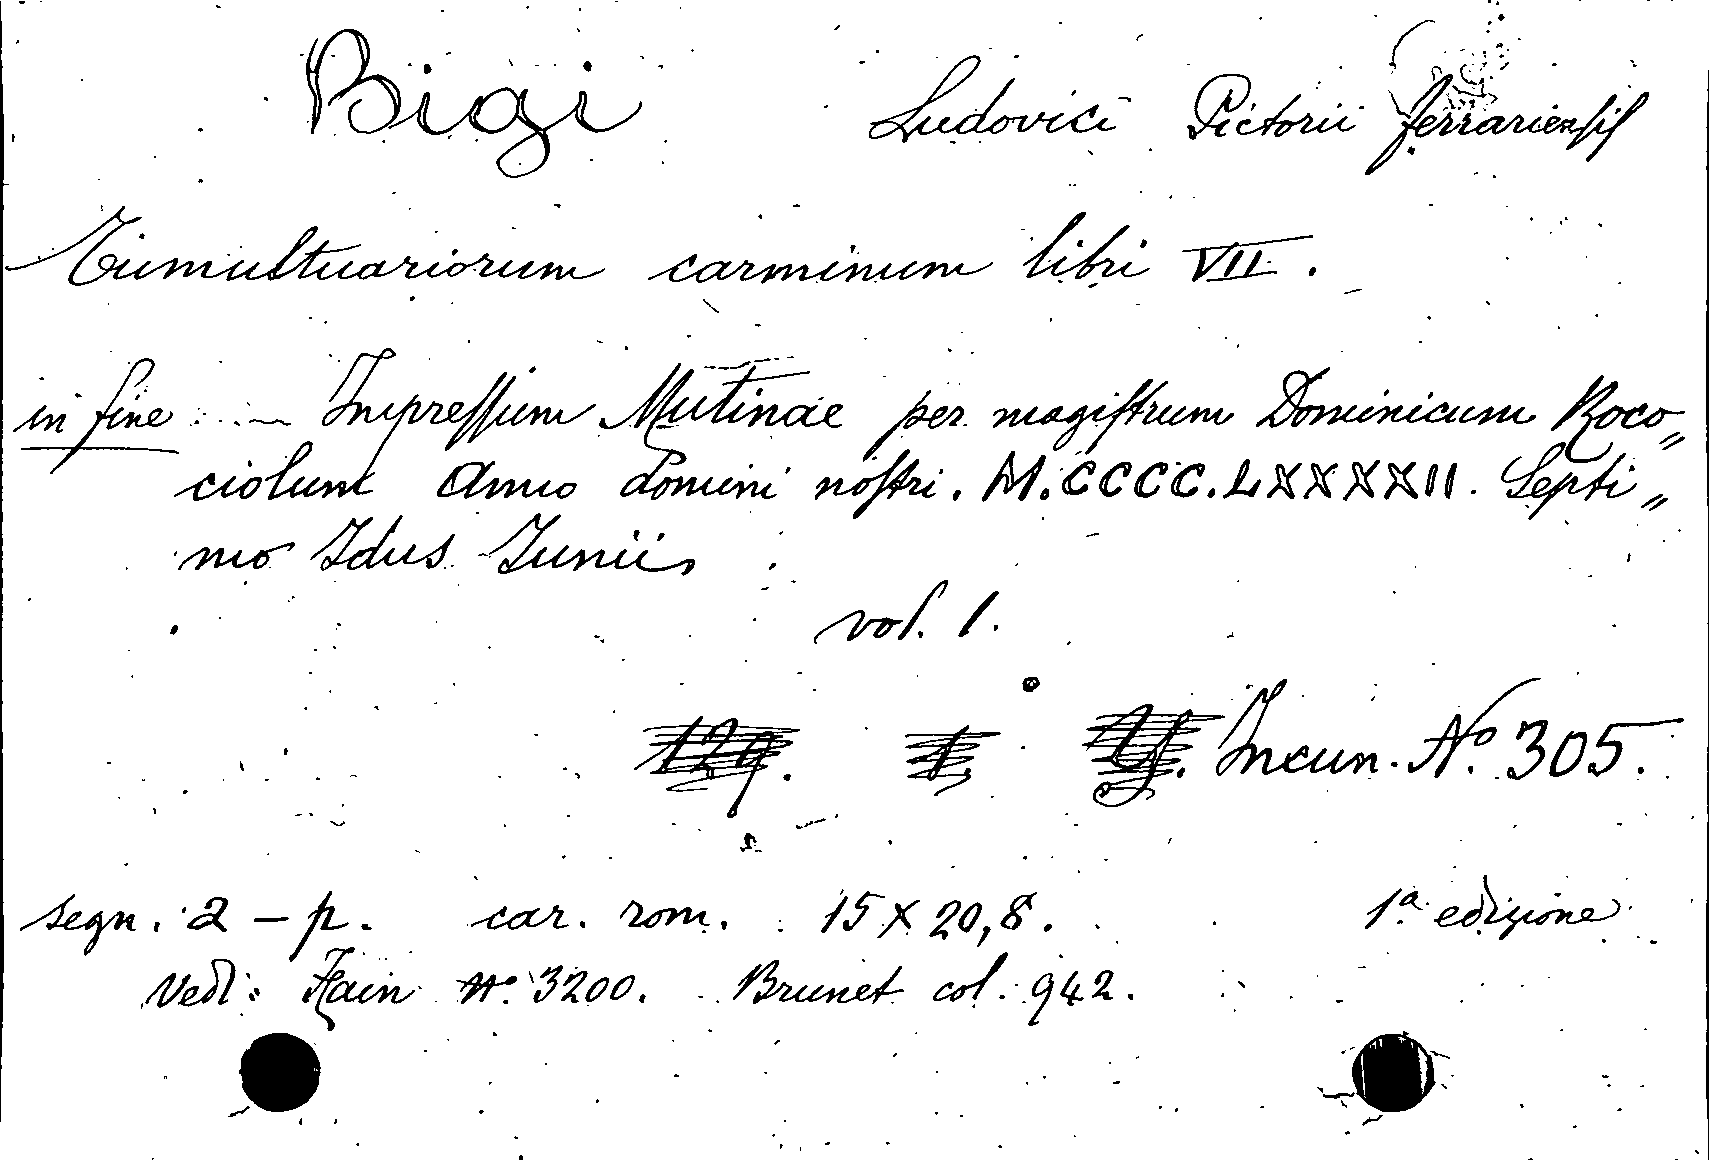 Bigi Ludovici Pictorii ferrariensis
Tumultuariorum carminum libri VII.
in fine Impressum Mutinae per magistrum Dominicum Roco„
ciolum Anno domini nostri. M.CCCC.LXXXXII. Septi„
mo Idus Junii
vol. 1.
129. 1. Y. Incun. No. 305.
segn. a – p. car. rom. 15 X 20,8. 1a edizione
Vedi: Hain No. 3200. Brunet col. 942.